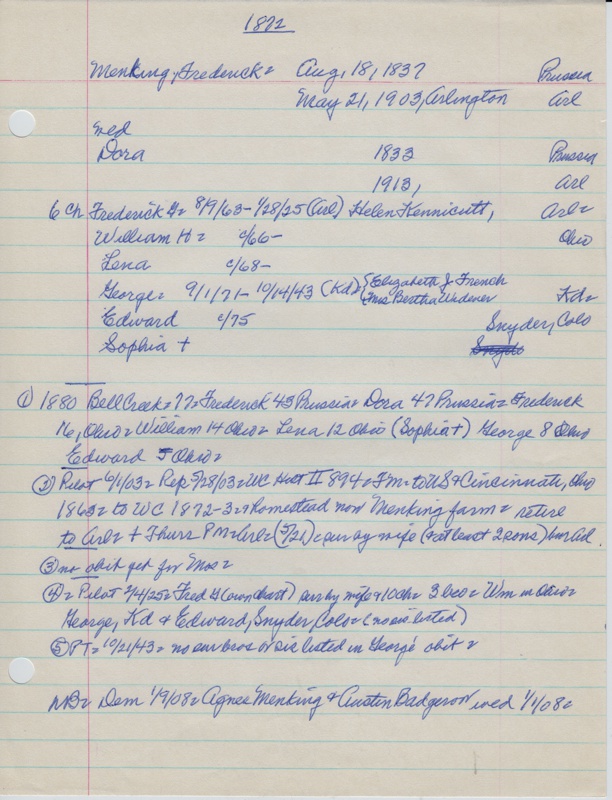 1872
Menking, Frederick = Aug, 18, 1837 Prussia
May 21, 1903, Arlington Arl
wed
Dora 1833 Prussia
1913, Arl
6 Ch Frederick H = 8/9/63 - 1/28/25 (Arl) Helen Kennicutt, Arl =
William H = c/66 - Ohio
Lena c/68 -
George = 9/1/71 - 10/14/43 (Kd) = {Elizabeth J. French Kd =
2 Mrs Bertha Widener
Edward c/75 Snyder, Colo
Sophia +
① 1880 Bell Creek = 77 = Frederick 43 Prussia = Dora 47 Prussia = Frederick
16, Ohio = William 14 Ohio = Lena 12 Ohio (Sophia +) George 8 Ohio
Edward 5 Ohio =
② Pilot 6/1/03 = Rep 5/28/03 = WC Hist II 894 = Fm = to US & Cincinnati, Ohio
1863 = to WC 1872-3 = homestead now Menking farm = retire
to Arl = + Thurs PM = Arl = (5/21) = sur by wife (& at least 2 sons) bur Arl
③ no obit get for Mos =
④ = Pilot 2/4/25 = Fred H (own chart) sur by wife & 10 ch = 3 bro = Wm in Ohio =
George, Kd & Edward, Snyder, Colo = (no sis listed)
⑤ PT = 10/21/43 = no sur bros or sis listed in George obit =
NB = Dem 1/9/08 = Agnes Menking & Austin Badgerow wed 1/1/08 =